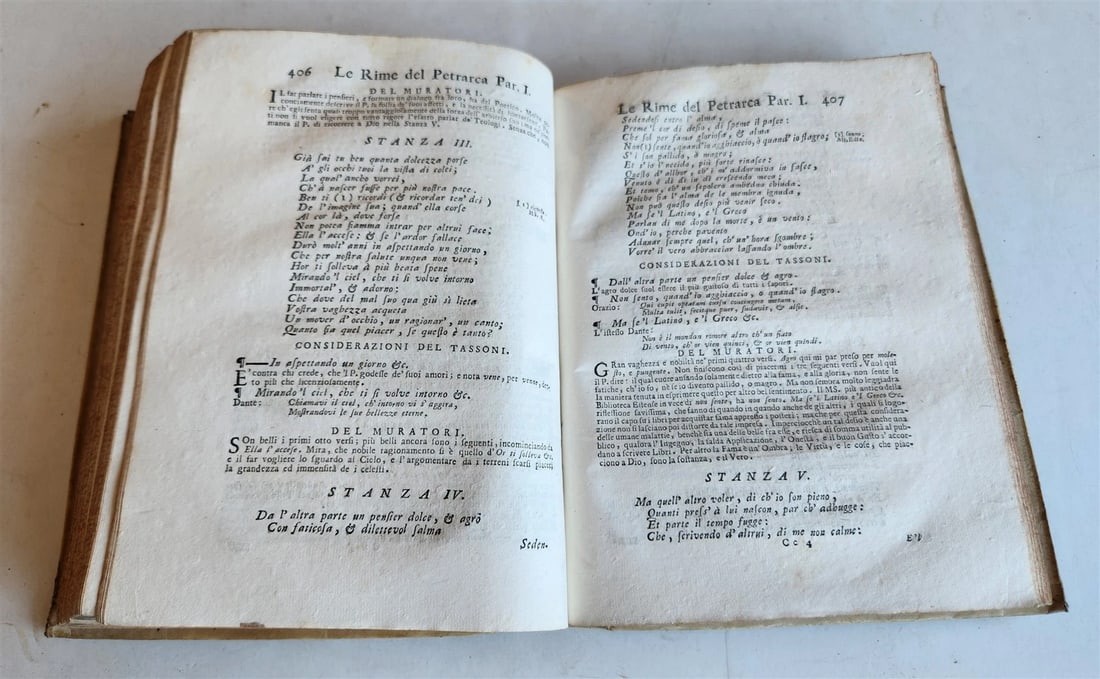 406 Le Rime del Petrarca Par. I.
DEL MURATORI.
IL far parlare i pensieri, e formare un dialogo fra loro, ha del Poetico.
re ch'egli senta quasi troppo vantaggiosamente della forza dell'
ti non si vuol esigere con tutto rigore l'esatto parlar de' Teologi. Senza che, non
manca il P. di ricorrere a Dio nella Stanza V.
STANZA III.
Già sai tu ben quanta dolcezza porse
A' gli occhi tuoi la vista di colei;
La qual' ancho vorrei,
Ch'à nascer fusse per più nostra pace.
Ben ti (1) ricordi (& ricordar ten' dei)
De l'imagine sua; quand'ella corse
Al cor là, dove forse
Non potea fiamma intrar per altrui face;
Ella l'accese: & se l'ardor fallace
Durò molt' anni in aspettando un giorno,
Che per nostra salute unqua non vene;
Hor ti solleva à più beata spene
Mirando 'l ciel, che ti si volve intorno
Immortal', & adorno:
Che dove del mal suo qua giù sì lieta
Vostra vaghezza acqueta
Un mover d'occhio, un ragionar', un canto;
Quanto fia quel piacer, se questo è tanto?
CONSIDERAZIONI DEL TASSONI.
¶—In aspettando un giorno &c.
E' contra chi crede, che 'l P. godesse de' suoi amori; e nota vene, per venne, det-
to più che licenziosamente.
¶ Mirando 'l ciel, che ti si volve intorno &c.
Dante: Chiamavi il ciel, ch'intorno vi s'aggira,
Mostrandovi le sue bellezze eterne.
DEL MURATORI.
SOn belli i primi otto versi; più belli ancora sono i seguenti, incominciando da
Ella l'accese. Mira, che nobile ragionamento si è quello d'Or ti solleva &c.
e il far vogliere lo sguardo al Cielo, e l'argomentare da i terreni scarsi piaceri
la grandezza ed immensità de i celesti.
STANZA IV.
Da l'altra parte un pensier dolce, & agro
Con faticosa, & dilettevol salma
Seden-
Le Rime del Petrarca Par. I. 407
Sedendosi entro l'alma,
Preme 'l cor di desio, di speme il pasce:
Che sol per fama gloriosa, & alma
Non (1) sente, quand'io agghiaccio, ò quand'io flagro;
S'i son pallido, ò magro;
Et s'io l'occido, più forte rinasce:
Questo d'allhor, ch'i m'addormiva in fasce,
Venuto è di dì in dì crescendo meco;
Et temo, ch'un sepolcro ambeduo chiuda.
Poiche fia l'alma de le membra ignuda,
Non può questo desio più venir seco.
Ma se 'l Latino, e 'l Greco
Parlan di me dopo la morte, è un vento:
Ond'io, perche pavento
Adunar sempre quel, ch'un' hora sgombre;
Vorre' il vero abbracciar lassando l'ombre.
CONSIDERAZIONI DEL TASSONI.
¶ Dall' altra parte un pensier dolce & agro.
L'agro dolce suol essere il più gustoso di tutti i sapori.
¶ Non sento, quand'io agghiaccio, o quand'io flagro.
Orazio: Qui cupit optatam cursu contingere metam,
Multa tulit, fecitque puer, sudavit, & alsit.
¶ Ma se 'l Latino, e 'l Greco &c.
L'istesso Dante:
Non è il mondan romore altro ch'un fiato
Di vento, ch'or vien quinci, & or vien quindi.
DEL MURATORI.
GRan vaghezza e nobiltà ne' primi quattro versi. Agro qui mi par preso per mole-
sto, e pungente. Non finiscono così di piacermi i tre seguenti versi. Vuol qui
il P. dire: il qual cuore ansando solamente dietro alla fama, e alla gloria, non sente le
fatiche, ch'io fo, nè se io divento pallido, o magro. Ma non sembra molto leggiadra
la maniera tenuta in esprimere questo per altro bel sentimento. Il MS. più antico della
Biblioteca Estense in vece di non sente, ha non sento. Ma se 'l Latino e 'l Greco &c.
riflessione savissima, che fanno di quando in quando anche degli altri, i quali si logo-
rano il capo su i libri per acquistar fama appresso i posteri; ma che per questa considera-
zione non si lasciano poi distorre da tale impresa. Imperciocchè un tal disio è anche una
delle umane malattie, benchè sia una delle belle fra esse, e riesca di somma utilità al pub-
blico, qualora l'Ingegno, la salda Applicazione, l'Onestà, e il buon Gusto s'accor-
dano a scrivere Libri. Per altro la Fama è un'Ombra; le Virtù, e le cose, che piac-
ciono a Dio, sono la sostanza, e il Vero.
STANZA V.
Ma quell' altro voler, di ch'io son pieno,
Quanti press' à lui nascon, par ch'adhugge:
Et parte il tempo fugge:
Che, scrivendo d'altrui, di me non calme:
Cc 4